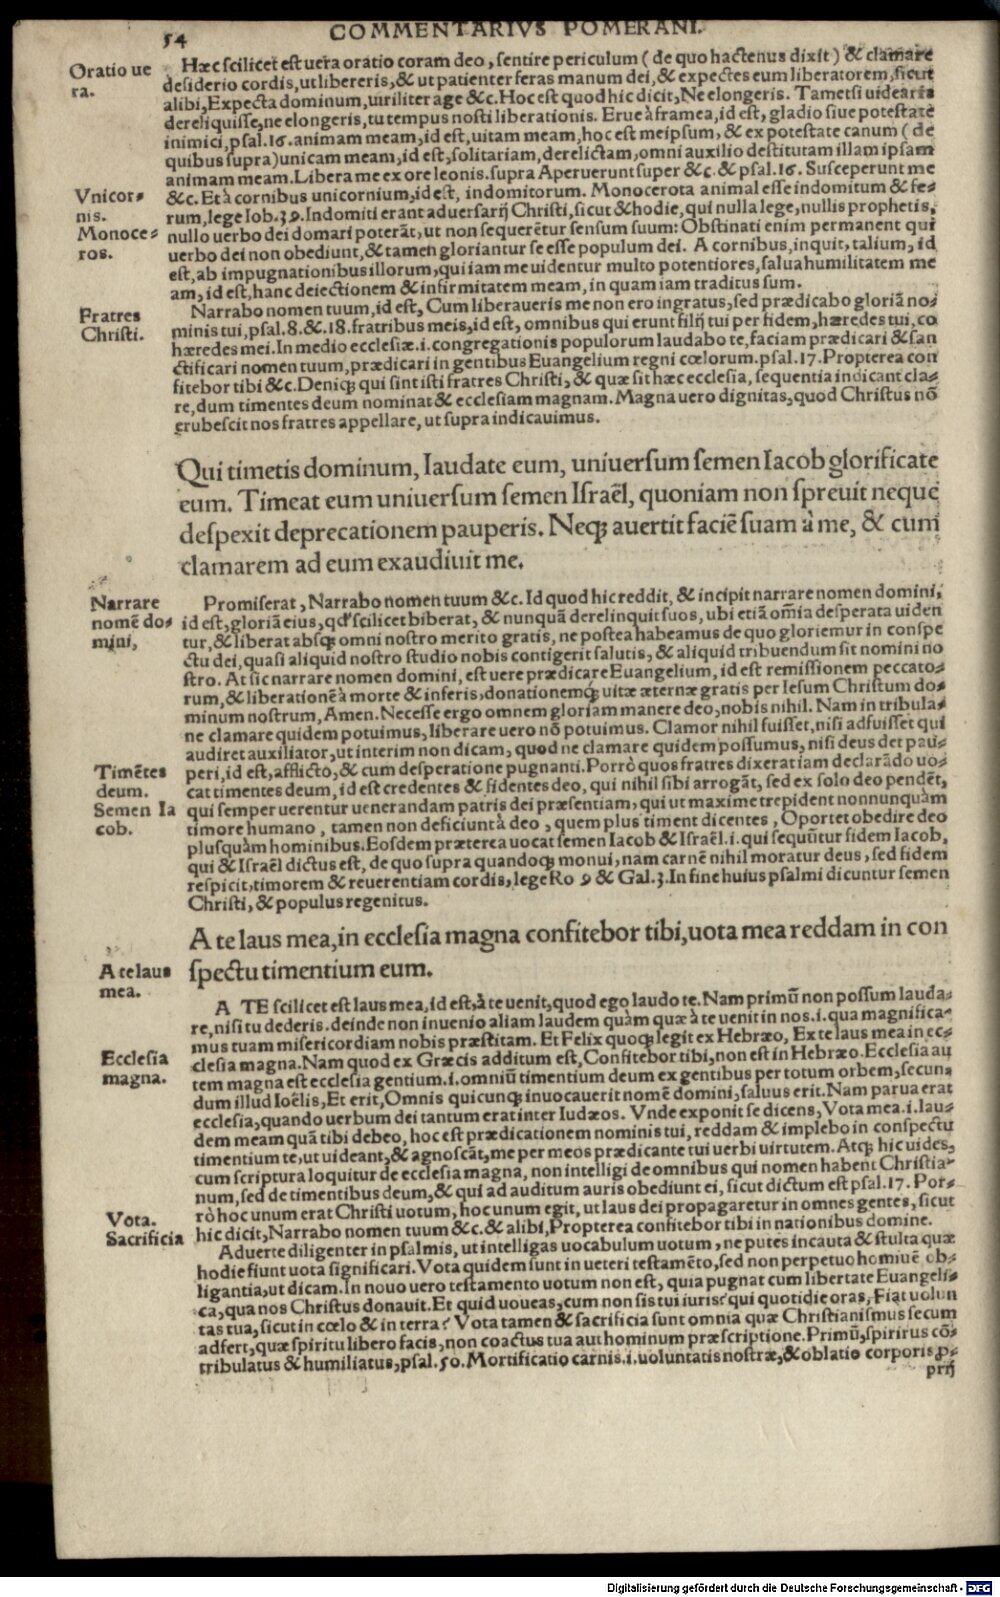 54
COMMENTARIVS POMERANI.
Oratio ue
ra.
Hæc scilicet est uera oratio coram deo, sentire periculum (de quo hactenus dixit) & clamare
desiderio cordis, ut libereris, & ut patienter feras manum dei, & expectes eum liberatorem, sicut
alibi, Expecta dominum, uiriliter age &c. Hoc est quod hic dicit, Ne elongeris. Tametsi uidearis
dereliquisse, ne elongeris, tu tempus nosti liberationis. Erue à framea, id est, gladio siue potestate
inimici, psal.16. animam meam, id est, uitam meam, hoc est meipsum, & ex potestate canum (de
quibus supra) unicam meam, id est, solitariam, derelictam, omni auxilio destitutam illam ipsam
animam meam. Libera me ex ore leonis. supra Aperuerunt super &c. & psal.16. Susceperunt me
Vnicor-
nis.
Monoce-
ros.
&c. Et à cornibus unicornium, id est, indomitorum. Monocerota animal esse indomitum & fe-
rum, lege Iob.39. Indomiti erant aduersarij Christi, sicut & hodie, qui nulla lege, nullis prophetis,
nullo uerbo dei domari poterāt, ut non sequerētur sensum suum: Obstinati enim permanent qui
uerbo dei non obediunt, & tamen gloriantur se esse populum dei. A cornibus, inquit, talium, id
est, ab impugnationibus illorum, qui iam me uidentur multo potentiores, salua humilitatem me
am, id est, hanc deiectionem & infirmitatem meam, in quam iam traditus sum.
Fratres
Christi.
Narrabo nomen tuum, id est, Cum liberaueris me non ero ingratus, sed prædicabo gloriā no-
minis tui, psal.8.&.18. fratribus meis, id est, omnibus qui erunt filij tui per fidem, hæredes tui, co
hæredes mei. In medio ecclesiæ.i. congregationis populorum laudabo te, faciam prædicari & san
ctificari nomen tuum, prædicari in gentibus Euangelium regni cœlorum. psal.17. Propterea con
fitebor tibi &c. Deniq; qui sint isti fratres Christi, & quæ sit hæc ecclesia, sequentia indicant cla-
re, dum timentes deum nominat & ecclesiam magnam. Magna uero dignitas, quod Christus nō
erubescit nos fratres appellare, ut supra indicauimus.
Qui timetis dominum, laudate eum, uniuersum semen Iacob glorificate
eum. Timeat eum uniuersum semen Israēl, quoniam non spreuit neque
despexit deprecationem pauperis. Neq; auertit faciē suam à me, & cum
clamarem ad eum exaudiuit me.
Narrare
nomē do-
mini,
Promiserat, Narrabo nomen tuum &c. Id quod hic reddit, & incipit narrare nomen domini,
id est, gloriā eius, qđ scilicet liberat, & nunquā derelinquit suos, ubi etiā om̄ia desperata uiden
tur, & liberat absq; omni nostro merito gratis, ne postea habeamus de quo gloriemur in conspe
ctu dei, quasi aliquid nostro studio nobis contigerit salutis, & aliquid tribuendum sit nomini no
stro. At sic narrare nomen domini, est uere prædicare Euangelium, id est remissionem peccato-
rum, & liberationē à morte & inferis, donationemq́; uitæ æternæ gratis per Iesum Christum do-
minum nostrum, Amen. Necesse ergo omnem gloriam manere deo, nobis nihil. Nam in tribula-
ne clamare quidem potuimus, liberare uero nō potuimus. Clamor nihil fuisset, nisi adfuisset qui
audiret auxiliator, ut interim non dicam, quod ne clamare quidem possumus, nisi deus det pau-
Timētes
deum.
Semen Ia
cob.
peri, id est, afflicto, & cum desperatione pugnanti. Porrò quos fratres dixerat iam declarādo uo-
cat timentes deum, id est credentes & fidentes deo, qui nihil sibi arrogāt, sed ex solo deo pendēt,
qui semper uerentur uenerandam patris dei præsentiam, qui ut maxime trepident nonnunquàm
timore humano, tamen non deficiunt à deo, quem plus timent dicentes, Oportet obedire deo
plusquàm hominibus. Eosdem præterea uocat semen Iacob & Israēl.i. qui sequūtur fidem Iacob,
qui & Israēl dictus est, de quo supra quandoq; monui, nam carnē nihil moratur deus, sed fidem
respicit, timorem & reuerentiam cordis, lege Ro 9 & Gal.3. In fine huius psalmi dicuntur semen
Christi, & populus regenitus.
A te laus mea, in ecclesia magna confitebor tibi, uota mea reddam in con
spectu timentium eum.
A te laus
mea.
A TE scilicet est laus mea, id est, à te uenit, quod ego laudo te. Nam primū non possum lauda-
re, nisi tu dederis. deinde non inuenio aliam laudem quàm quæ à te uenit in nos.i. qua magnifica-
mus tuam misericordiam nobis præstitam. Et Felix quoq; legit ex Hebræo, Ex te laus mea in ec-
Ecclesia
magna.
clesia magna. Nam quod ex Græcis additum est, Confitebor tibi, non est in Hebræo. Ecclesia au
tem magna est ecclesia gentium.i. omniū timentium deum ex gentibus per totum orbem, secun-
dum illud Ioēlis, Et erit, Omnis quicunq; inuocauerit nomē domini, saluus erit. Nam parua erat
ecclesia, quando uerbum dei tantum erat inter Iudæos. Vnde exponit se dicens, Vota mea.i. lau-
dem meam quā tibi debeo, hoc est prædicationem nominis tui, reddam & implebo in conspectu
timentium te, ut uideant, & agnoscāt, me per meos prædicante tui uerbi uirtutem. Atq; hic uides,
cum scriptura loquitur de ecclesia magna, non intelligi de omnibus qui nomen habent Christia-
num, sed de timentibus deum, & qui ad auditum auris obediunt ei, sicut dictum est psal.17. Por-
rò hoc unum erat Christi uotum, hoc unum egit, ut laus dei propagaretur in omnes gentes, sicut
hic dicit, Narrabo nomen tuum &c. & alibi, Propterea confitebor tibi in nationibus domine.
Vota.
Sacrificia
Aduerte diligenter in psalmis, ut intelligas uocabulum uotum, ne putes incauta & stulta quæ
hodie fiunt uota significari. Vota quidem sunt in ueteri testamēto, sed non perpetuo hominē ob-
ligantia, ut dicam. In nouo uero testamento uotum non est, quia pugnat cum libertate Euangeli-
ca, qua nos Christus donauit. Et quid uoueas, cum non sis tui iuris? qui quotidie oras, Fiat uolun
tas tua, sicut in cœlo & in terra? Vota tamen & sacrificia sunt omnia quæ Christianismus secum
adfert, quæ spiritu libero facis, non coactus tua aut hominum præscriptione. Primū, spirirus cō-
tribulatus & humiliatus, psal.50. Mortificatio carnis.i. uoluntatis nostræ, & oblatio corporis p-
prij
Digitalisierung gefördert durch die Deutsche Forschungsgemeinschaft - DFG